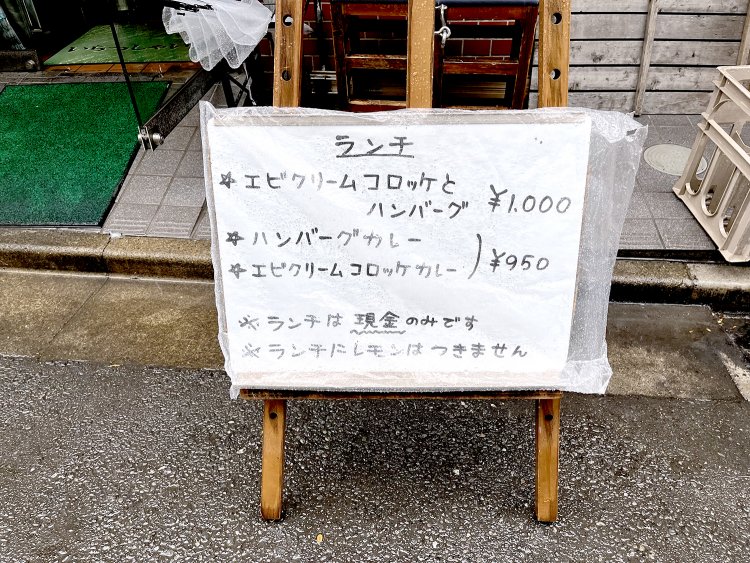 ランチ
☆ エビクリームコロッケと
ハンバーグ ¥1.000
☆ ハンバーグカレー
☆ エビクリームコロッケカレー ) ¥950
※ ランチは 現金のみです
※ ランチにレモンはつきません